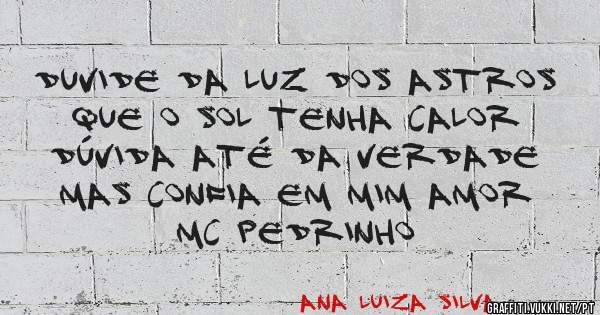 DUVIDE DA LUZ DOS ASTROS
QUE O SOL TENHA CALOR
DÚVIDA ATÉ DA VERDADE
MAS CONFIA EM MIM AMOR
MC PEDRINHO
ANA LUIZA SILVA
GRAFFITI.VUKKI.NET/PT